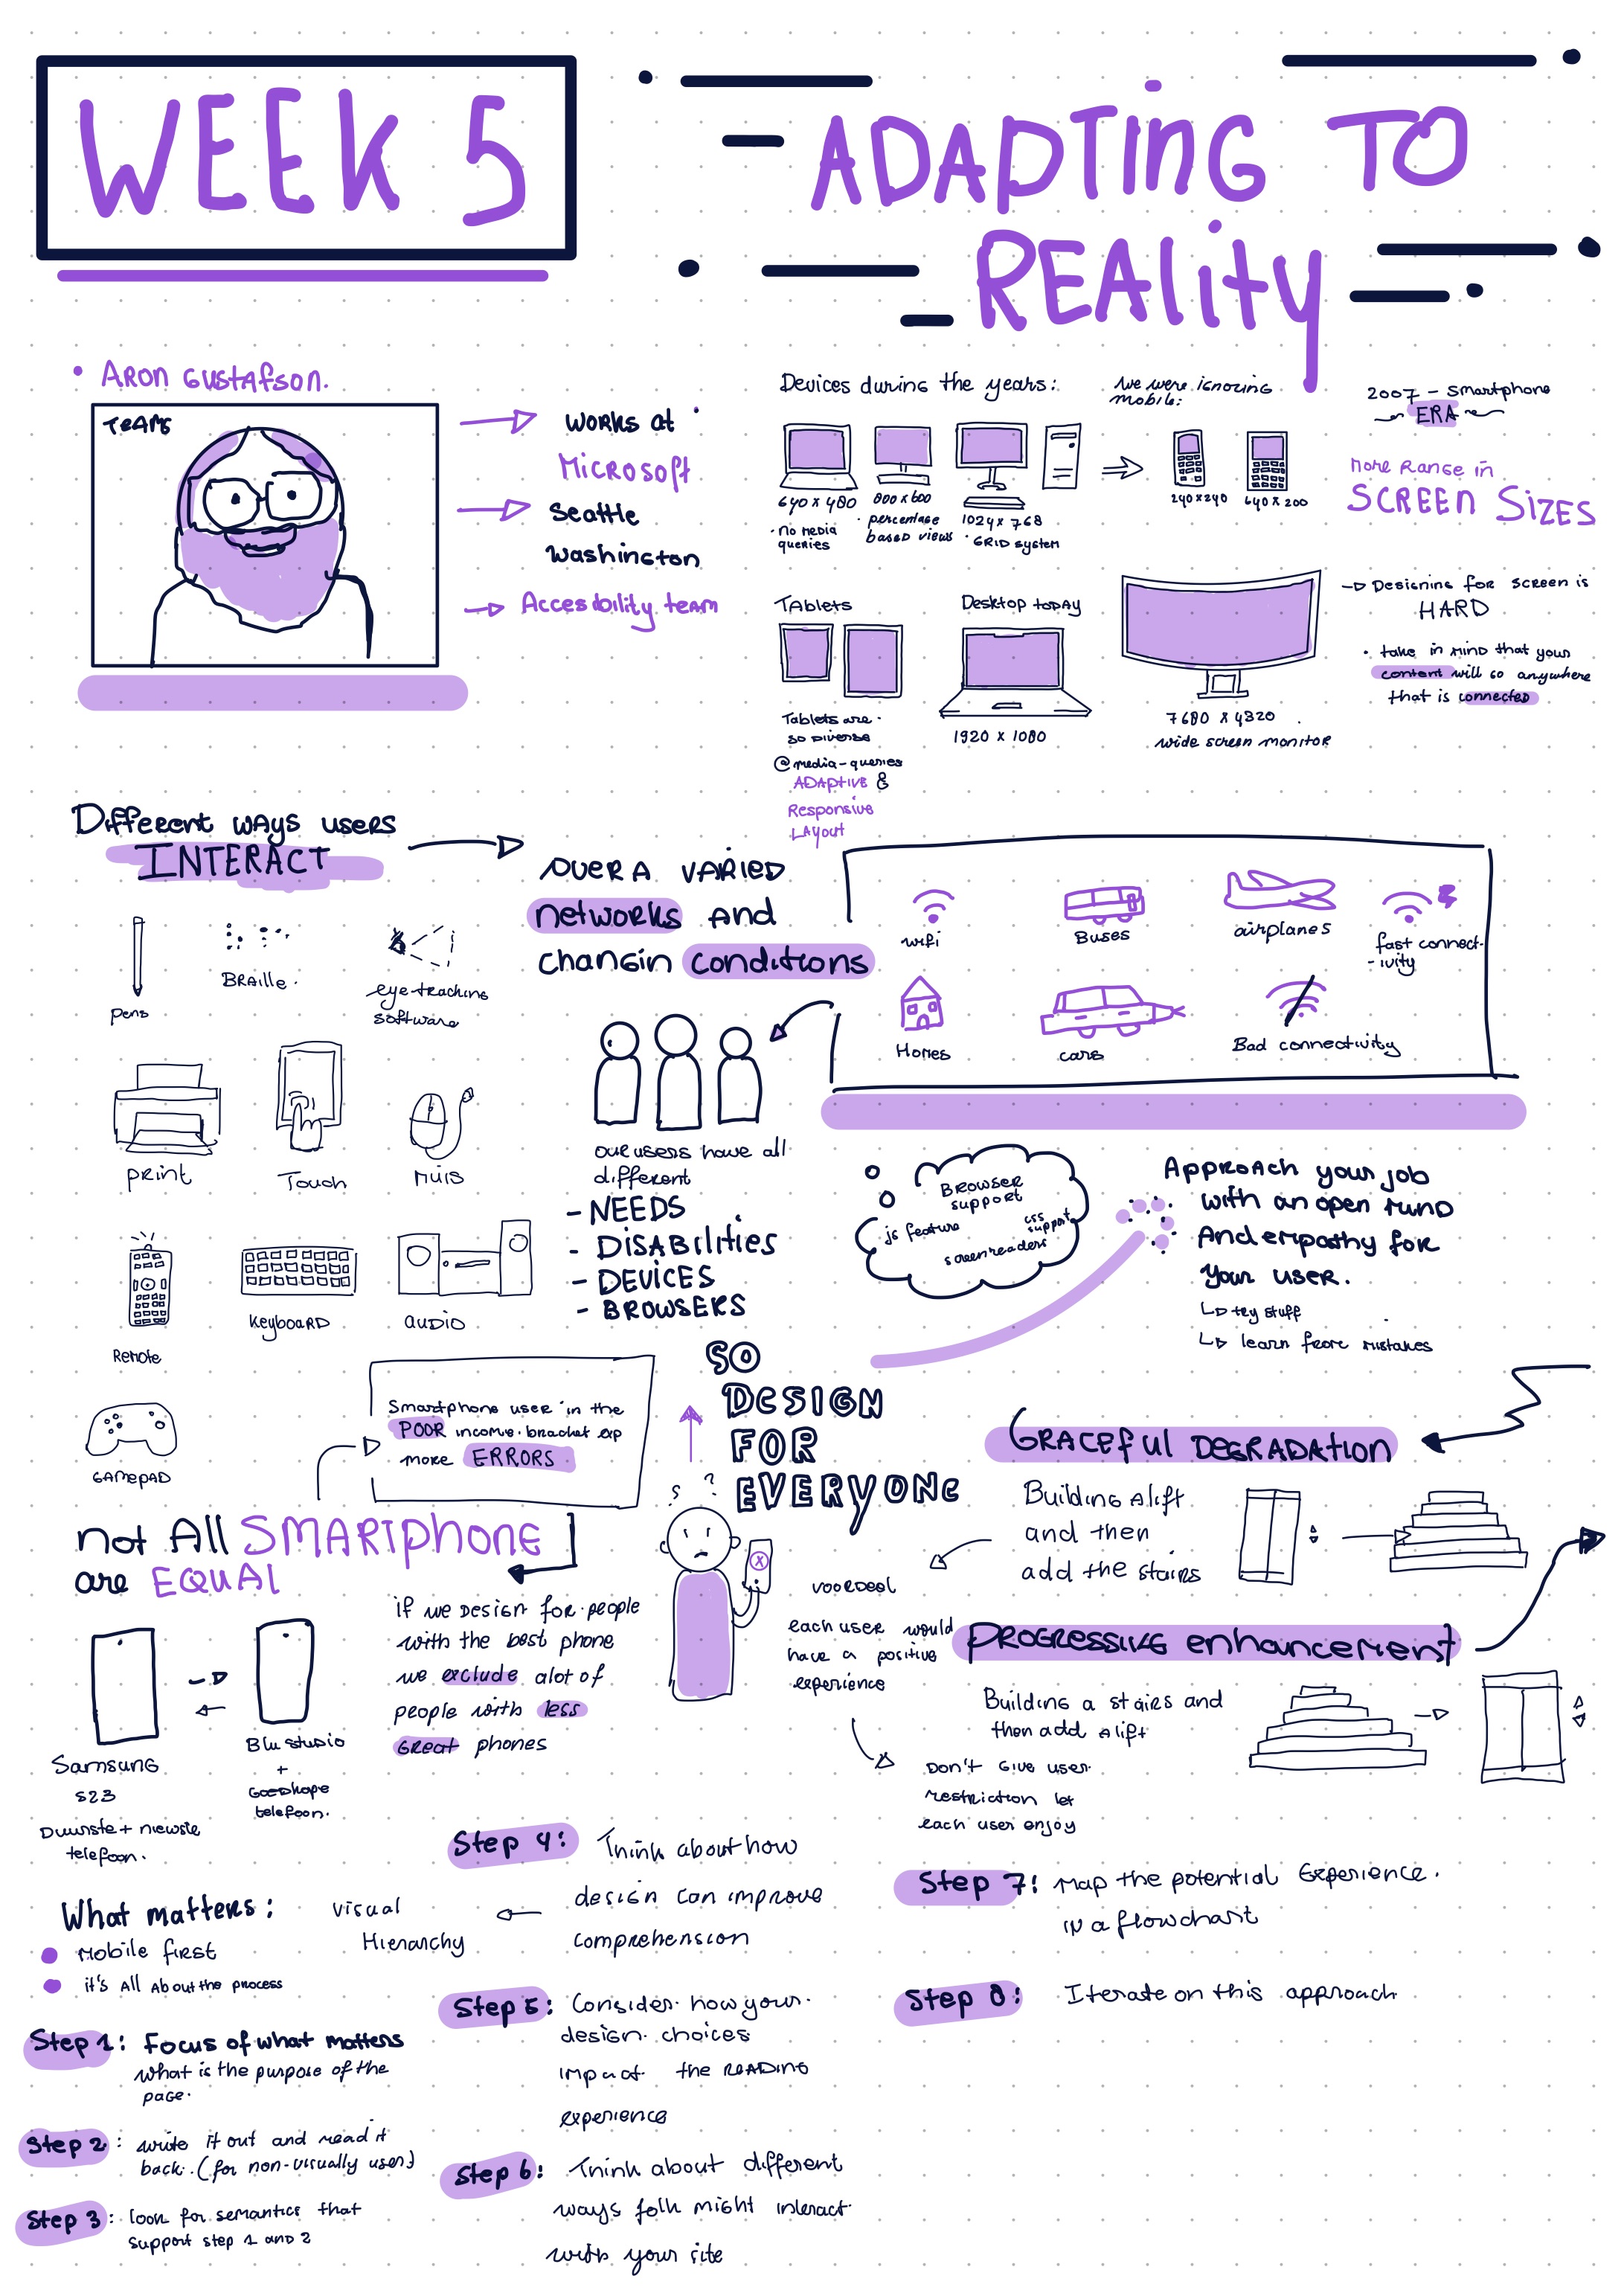 WEEK 5
ADAPTING TO
REALITY
• ARON GUSTAFSON.
TEAMS
works at
MICROSOFT
Seattle
Washington
Accesbility team
Devices during the years:
640 x 480
• no media
queries
800 x 600
• percentage
based views
1024 x 768
• GRID system
we were ignoring
mobile:
240x240
640 x 200
2007 - smartphone
ERA
More Range in
SCREEN SIZES
Tablets
Tablets are
so diverse
@media-queries
ADAptive &
Responsive
Layout
Desktop today
1920 x 1080
7680 x 4320
wide screen monitor
Designing for screen is
HARD
• take in mind that your
content will go anywhere
that is connected
Different ways users
INTERACT
pens
BRAille
eye-tracking
software
print
Touch
Muis
Remote
KeyboaRD
audio
GAMEPAD
OVER A VARIED
networks AND
changin conditions
wifi
Buses
airplanes
fast connect-
-ivity
Homes
cars
Bad connectivity
our users have all
different
- NEEDS
- DISABILITIES
- DEVICES
- BROWSERS
SO
DESIGN
FOR
EVERYONE
Browser
support
js feature
css
support
screenreaders
Approach your job
with an open mind
And empathy for
your user.
try stuff
learn from mistakes
Smartphone user in the
POOR income bracket exp
more ERRORS
not All SMARTphone
are EQUAL
Samsung
S23
Duurste + nieuwste
telefoon.
Blu studio
+
Goedkope
telefoon.
if we Design for people
with the best phone
we exclude alot of
people with less
GREAT phones
? ?
X
GRACEful DEGRADATION
Building a lift
and then
add the stairs
voordeel
each user would
have a positive
experience
PROGRESSIVE enhancement
Building a stairs and
then add a lift
Don't Give user
restriction let
each user enjoy
What matters:
• Mobile first
• it's All About the process
Step 1: Focus of what matters
what is the purpose of the
page.
Step 2: write it out and read it
back. (for non-visually users)
Step 3: look for semantics that
support step 1 and 2
Step 4: Think about how
design can improve
comprehension
visual
Hierarchy
Step 5: Consider how your
design choices
impact the READING
experience
Step 6: Think about different
ways folk might interact
with your site
Step 7: Map the potential Experience.
in a flowchart
Step 8: Iterate on this approach